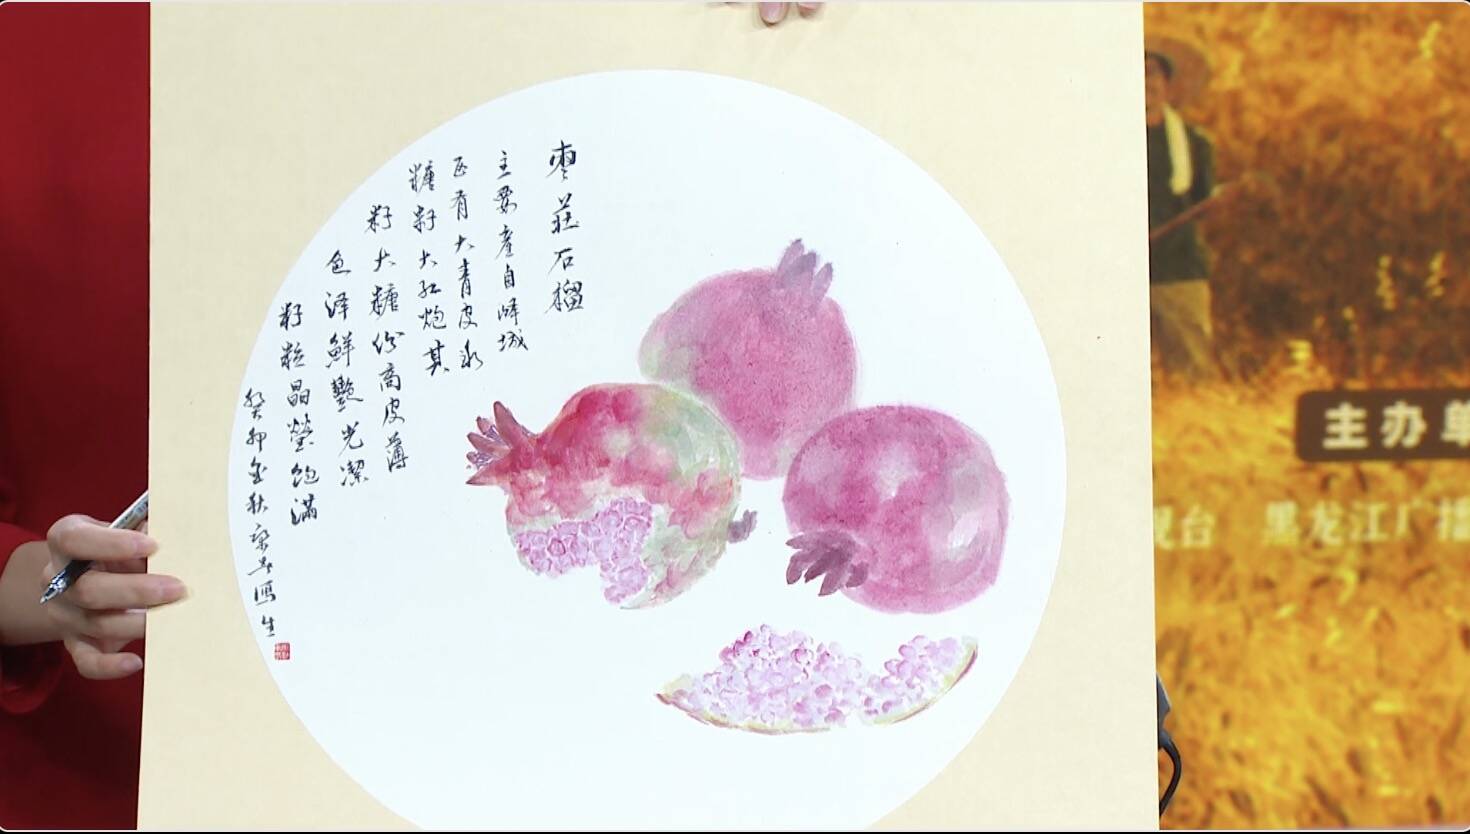 枣莊石榴
主要產自峄城
有大青皮冰
糖籽大红炮其
籽大糖份高皮薄
色泽鮮艷光潔
籽粒晶瑩饱滿
癸卯金秋寫生
主办单
视台 黑龙江广播